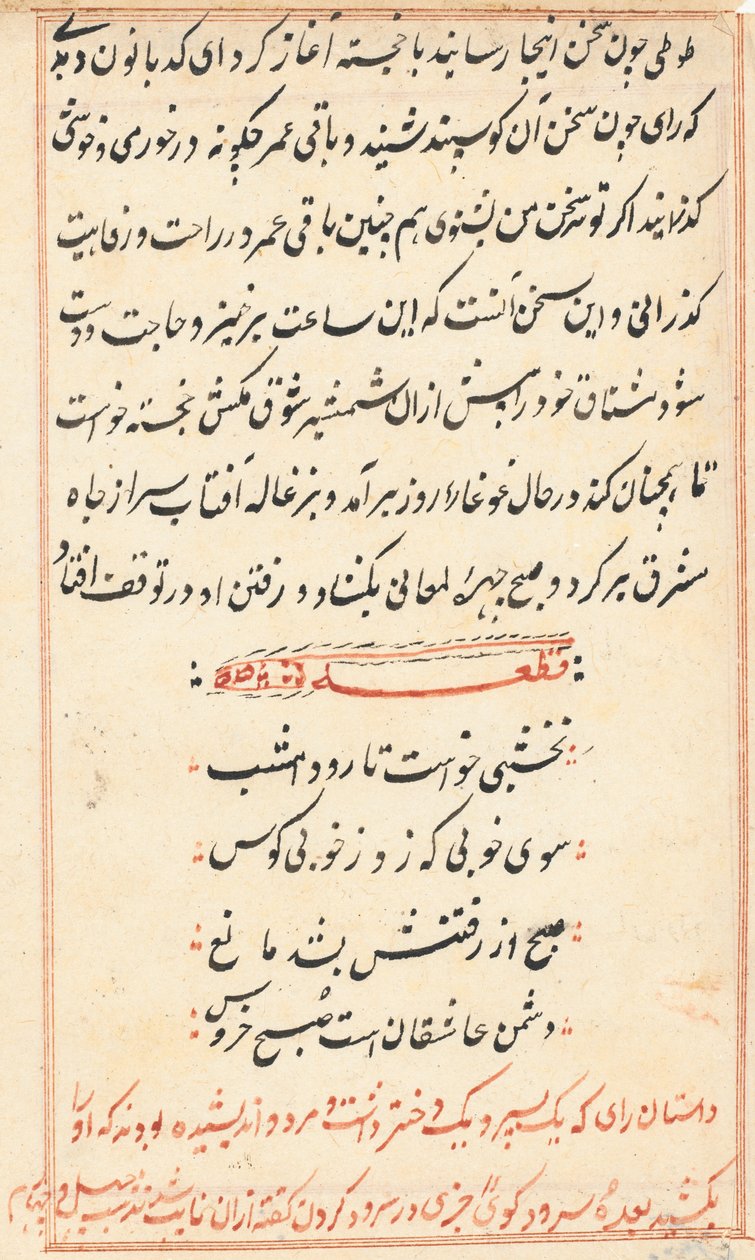 طوطی چون سخن اینجا رسانید با خجسته آغاز کرد ای کدبانون دیدی
که رای چون سخن آن کوسپند شنید و باقی عمر چکونه در خورمی و خوشی
کذرانید اکر تو نه سخن من بشنوی هم چنین باقی عمر در راحت و رفاهیت
کذرانی و این سخن آنست که این ساعت برخیز و حاجت دوست
شو و مشتاق خود را بیش ازان شمشیر شوق مکش خجسته خواست
تا همچنان کند در حال غوغاء روز برآمد و بزغاله آفتاب سر از چاه
مشرق برکرد و صبح چهرهٔ لمعانی بکشاد و رفتن او در توقف افتاد
قطعه
نخشبی خواست تا رود امشب
سوی خوبی که زد ز خوبی کوس
صبح از رفتنش بشد مانع
دشمن عاشقان است صبح خروس
داستان رای که یک پسر و یک دختر داشت و مردو اندیشیده بود نه که او را
بکشید بعده سرود کوئی در سرود کردن کفته ازان تایب شد شب چهل و چهارم